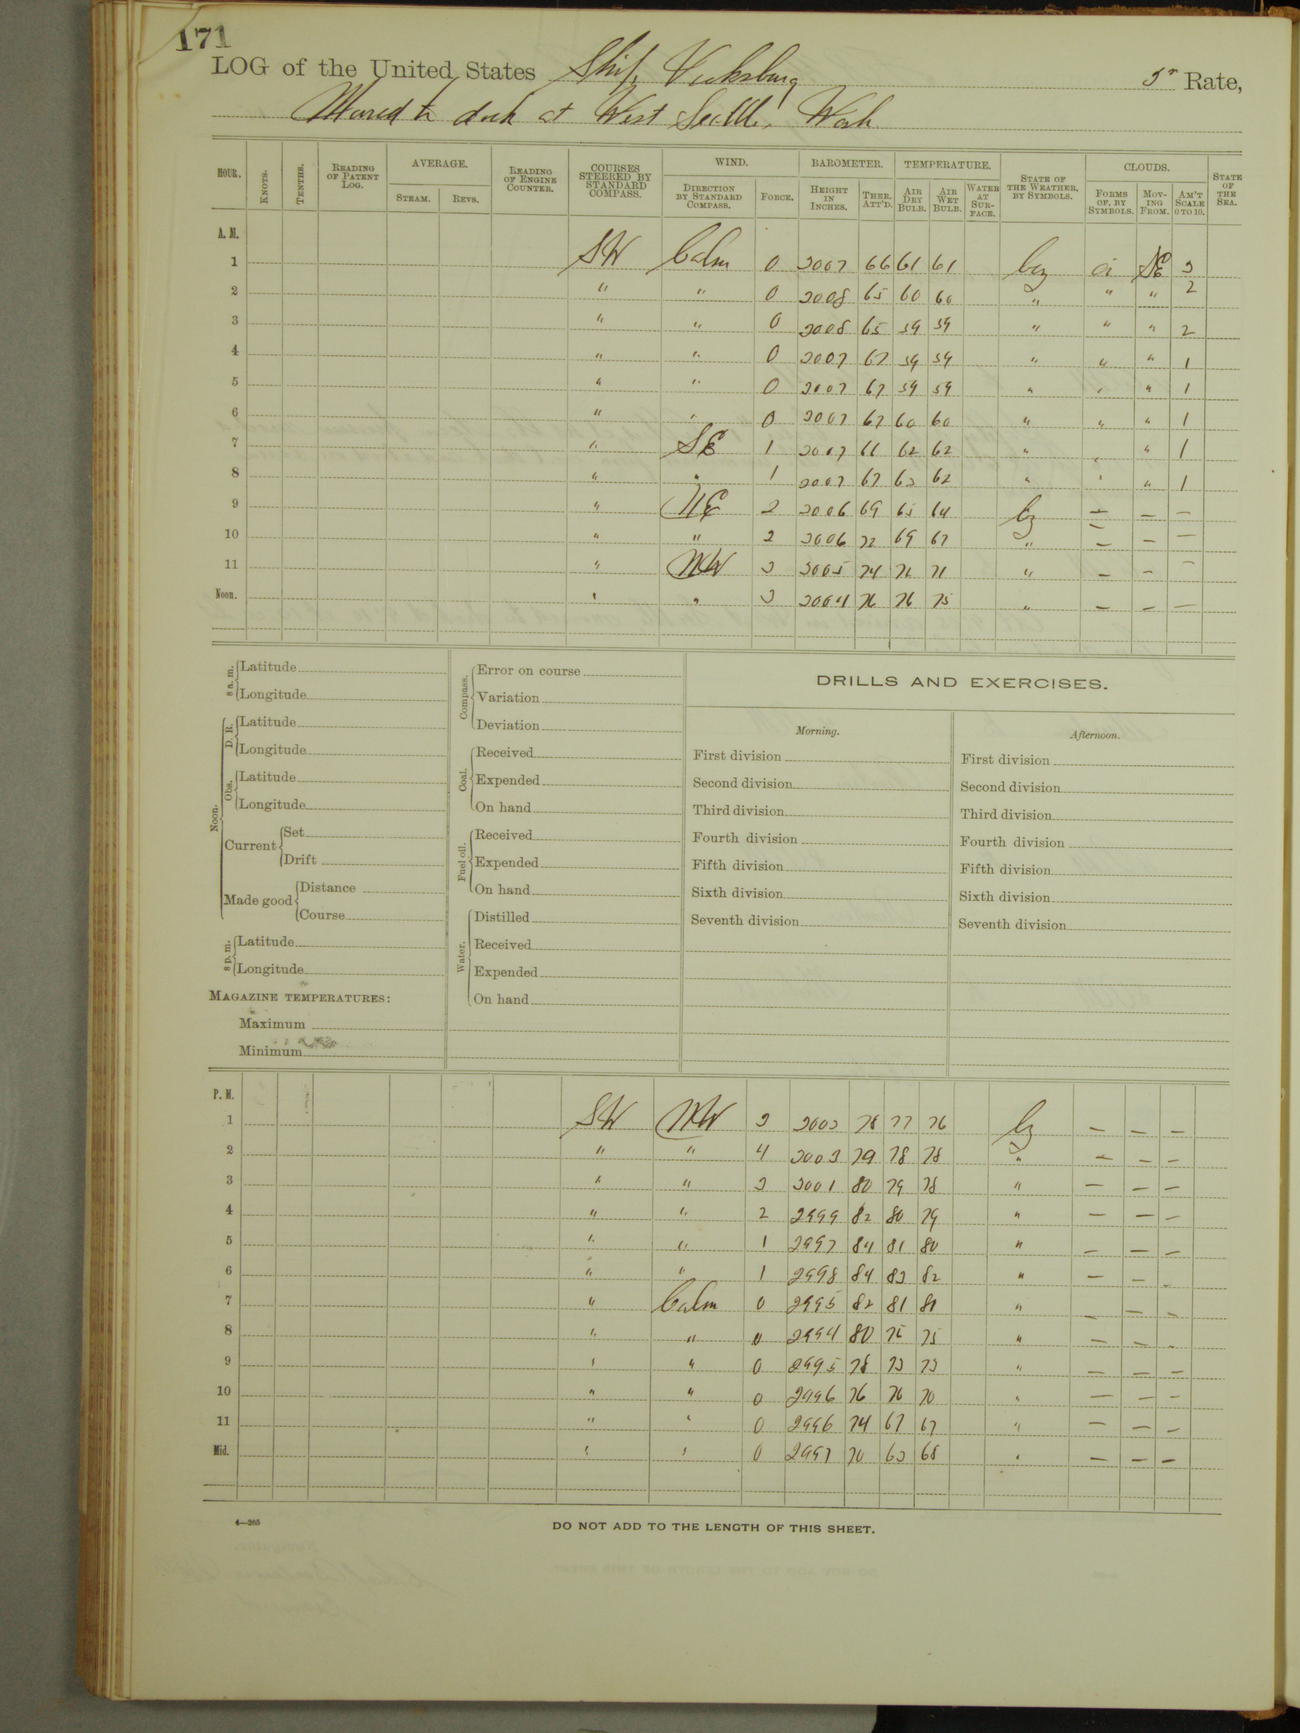 171
LOG of the United States Ship Vicksburg 3r Rate,
Moored to dock at West Seattle, Wash
HOUR. KNOTS. TENTHS. READING OF PATENT LOG. AVERAGE. STEAM. REVS. READING OF ENGINE COUNTER. COURSES STEERED BY STANDARD COMPASS. WIND. DIRECTION BY STANDARD COMPASS. FORCE. BAROMETER. HEIGHT IN INCHES. THER. ATT'D. TEMPERATURE. AIR DRY BULB. AIR WET BULB. WATER AT SURFACE. STATE OF THE WEATHER, BY SYMBOLS. CLOUDS. FORMS OF, BY SYMBOLS. MOVING FROM. AM'T SCALE 0 TO 10. STATE OF THE SEA.
A. M.
1 SW Calm 0 3007 66 61 61 bcz ci SE 3
2 " " 0 3008 65 60 60 " " " 2
3 " " 0 3008 65 59 59 " " " 2
4 " " 0 3007 67 59 59 " " " 1
5 " " 0 3007 67 59 59 " " " 1
6 " " 0 3007 67 60 60 " " " 1
7 " SE 1 3007 66 62 62 " " " 1
8 " " 1 3007 67 63 62 " " " 1
9 " NE 2 3006 69 65 64 bz — — —
10 " " 2 3006 72 69 67 " — — —
11 " NW 3 3005 74 72 71 " — — —
Noon. " " 3 3004 76 76 75 " — — —
8 a. m. Latitude
Longitude
Noon. D. R. Latitude
Longitude
Obs. Latitude
Longitude
Current Set
Drift
Made good Distance
Course
8 p. m. Latitude
Longitude
MAGAZINE TEMPERATURES:
Maximum
Minimum
Compass. Error on course
Variation
Deviation
Coal. Received
Expended
On hand
Fuel oil. Received
Expended
On hand
Water. Distilled
Received
Expended
On hand
DRILLS AND EXERCISES.
Morning.
First division
Second division
Third division
Fourth division
Fifth division
Sixth division
Seventh division
Afternoon.
First division
Second division
Third division
Fourth division
Fifth division
Sixth division
Seventh division
P. M.
1 SW NW 3 3003 78 77 76 bz — — —
2 " " 4 3003 79 78 78 " — — —
3 " " 3 3001 80 79 78 " — — —
4 " " 2 2999 82 80 79 " — — —
5 " " 1 2997 84 81 80 " — — —
6 " " 1 2998 84 83 82 " — — —
7 " Calm 0 2995 82 81 81 " — — —
8 " " 0 2994 80 75 75 " — — —
9 " " 0 2995 78 73 73 " — — —
10 " " 0 2996 76 70 70 " — — —
11 " " 0 2996 74 67 67 " — — —
Mid. " " 0 2997 70 63 68 " — — —
4—265
DO NOT ADD TO THE LENGTH OF THIS SHEET.